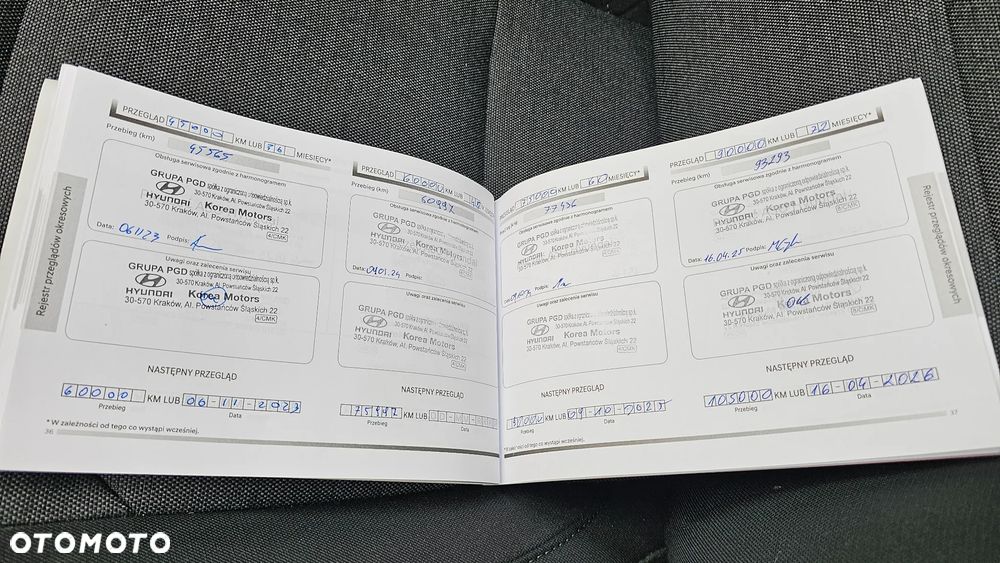 PRZEGLĄD 45000 KM LUB 36 MIESIĘCY*
Przebieg (km) 45565
Obsługa serwisowa zgodnie z harmonogramem
GRUPA PGD spółka z ograniczoną odpowiedzialnością sp.k.
30-570 Kraków, Al. Powstańców Śląskich 22
HYUNDAI Korea Motors
4/CMK
Data: Podpis:
Uwagi oraz zalecenia serwisu
GRUPA PGD spółka z ograniczoną odpowiedzialnością sp.k.
30-570 Kraków, Al. Powstańców Śląskich 22
HYUNDAI Korea Motors
30-570 Kraków, Al. Powstańców Śląskich 22
4/CMK
NASTĘPNY PRZEGLĄD
60000 KM LUB 06-11-2023
Przebieg Data
* W zależności od tego co wystąpi wcześniej.
36
Rejestr przeglądów okresowych
PRZEGLĄD 60000 KM LUB
Przebieg (km)
Obsługa serwisowa zgodnie z harmonogramem
GRUPA PGD
HYUNDAI Korea Motors
30-570 Kraków, Al. Powstańców Śląskich 22
Data: Podpis:
Uwagi oraz zalecenia serwisu
GRUPA PGD
30-570 Kraków, Al. Powstańców Śląskich 22
HYUNDAI Korea Motors
30-570 Kraków, Al. Powstańców Śląskich 22
NASTĘPNY PRZEGLĄD
KM LUB
Przebieg Data
75000 KM LUB 60 MIESIĘCY*
77436
Obsługa serwisowa zgodnie z harmonogramem
GRUPA PGD
HYUNDAI Korea Motors
30-570 Kraków, Al. Powstańców Śląskich 22
Podpis:
Uwagi oraz zalecenia serwisu
GRUPA PGD
30-570 Kraków, Al. Powstańców Śląskich 22
HYUNDAI Korea Motors
30-570 Kraków, Al. Powstańców Śląskich 22
4/CMK
NASTĘPNY PRZEGLĄD
KM LUB
Przebieg Data
od tego co wystąpi wcześniej.
PRZEGLĄD 90000 KM LUB 72 MIESIĘCY*
Przebieg (km) 93293
Obsługa serwisowa zgodnie z harmonogramem
GRUPA PGD spółka z ograniczoną odpowiedzialnością sp.k.
30-570 Kraków, Al. Powstańców Śląskich 22
HYUNDAI Korea Motors
30-570 Kraków, Al. Powstańców Śląskich 22
4/CMK
Data: 16.04.25 Podpis:
Uwagi oraz zalecenia serwisu
GRUPA PGD spółka z ograniczoną odpowiedzialnością sp.k.
30-570 Kraków, Al. Powstańców Śląskich 22
HYUNDAI Korea Motors
30-570 Kraków, Al. Powstańców Śląskich 22
4/CMK
NASTĘPNY PRZEGLĄD
105000 KM LUB 16-04-2026
Przebieg Data
37
Rejestr przeglądów okresowych
OTOMOTO